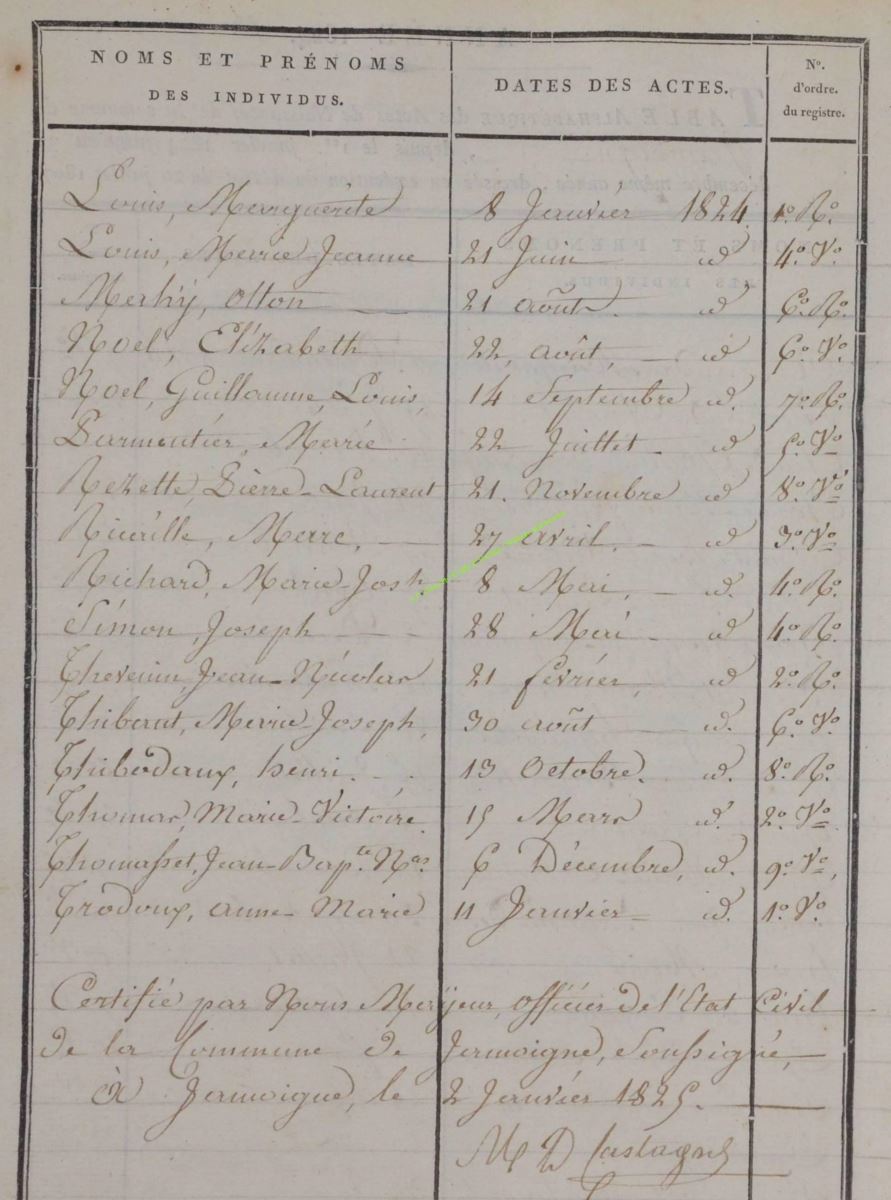 NOMS ET PRÉNOMS
DES INDIVIDUS.
DATES DES ACTES.
N°.
d'ordre.
du registre.
Louis, Marguerite 8 Janvier 1824 1° R°
Louis, Marie Jeanne 21 Juin id 4° V°
Merhÿ, Otton 21 août. id 6° R°
Noel, Elizabeth 22, août, id 6° V°
Noel, Guillaume, Louis, 14 Septembre id. 7° R°
Parmentier, Marie 22 Juillet id 5° V°
Rezette, Pierre-Laurent 21. Novembre id 8° V°
27 avril, id 3° V°
Richard, Marie-Josh. 8 Mai, id. 4° R°
Simon, Joseph 28 Mai id 4° R°
Thevenin, Jean-Nicolas 21 février, id 2° R°
Thibaut, Marie Joseph, 30 août id. 6° V°
Thibodaux, henri. 13 Octobre. id. 8° R°
Thomas, Marie-Victoire 15 Mars id. 2° V°
Thomasset, Jean-Bap.te Nas. 6 Décembre, id. 9° V°,
Trodoux, anne-Marie 11 Janvier id. 1° V°
Certifié par Nous Mayeur, officier de l'Etat Civil
de la Commune de Jamoigne, Soussigné,
à Jamoigne, le 2 Janvier 1825.